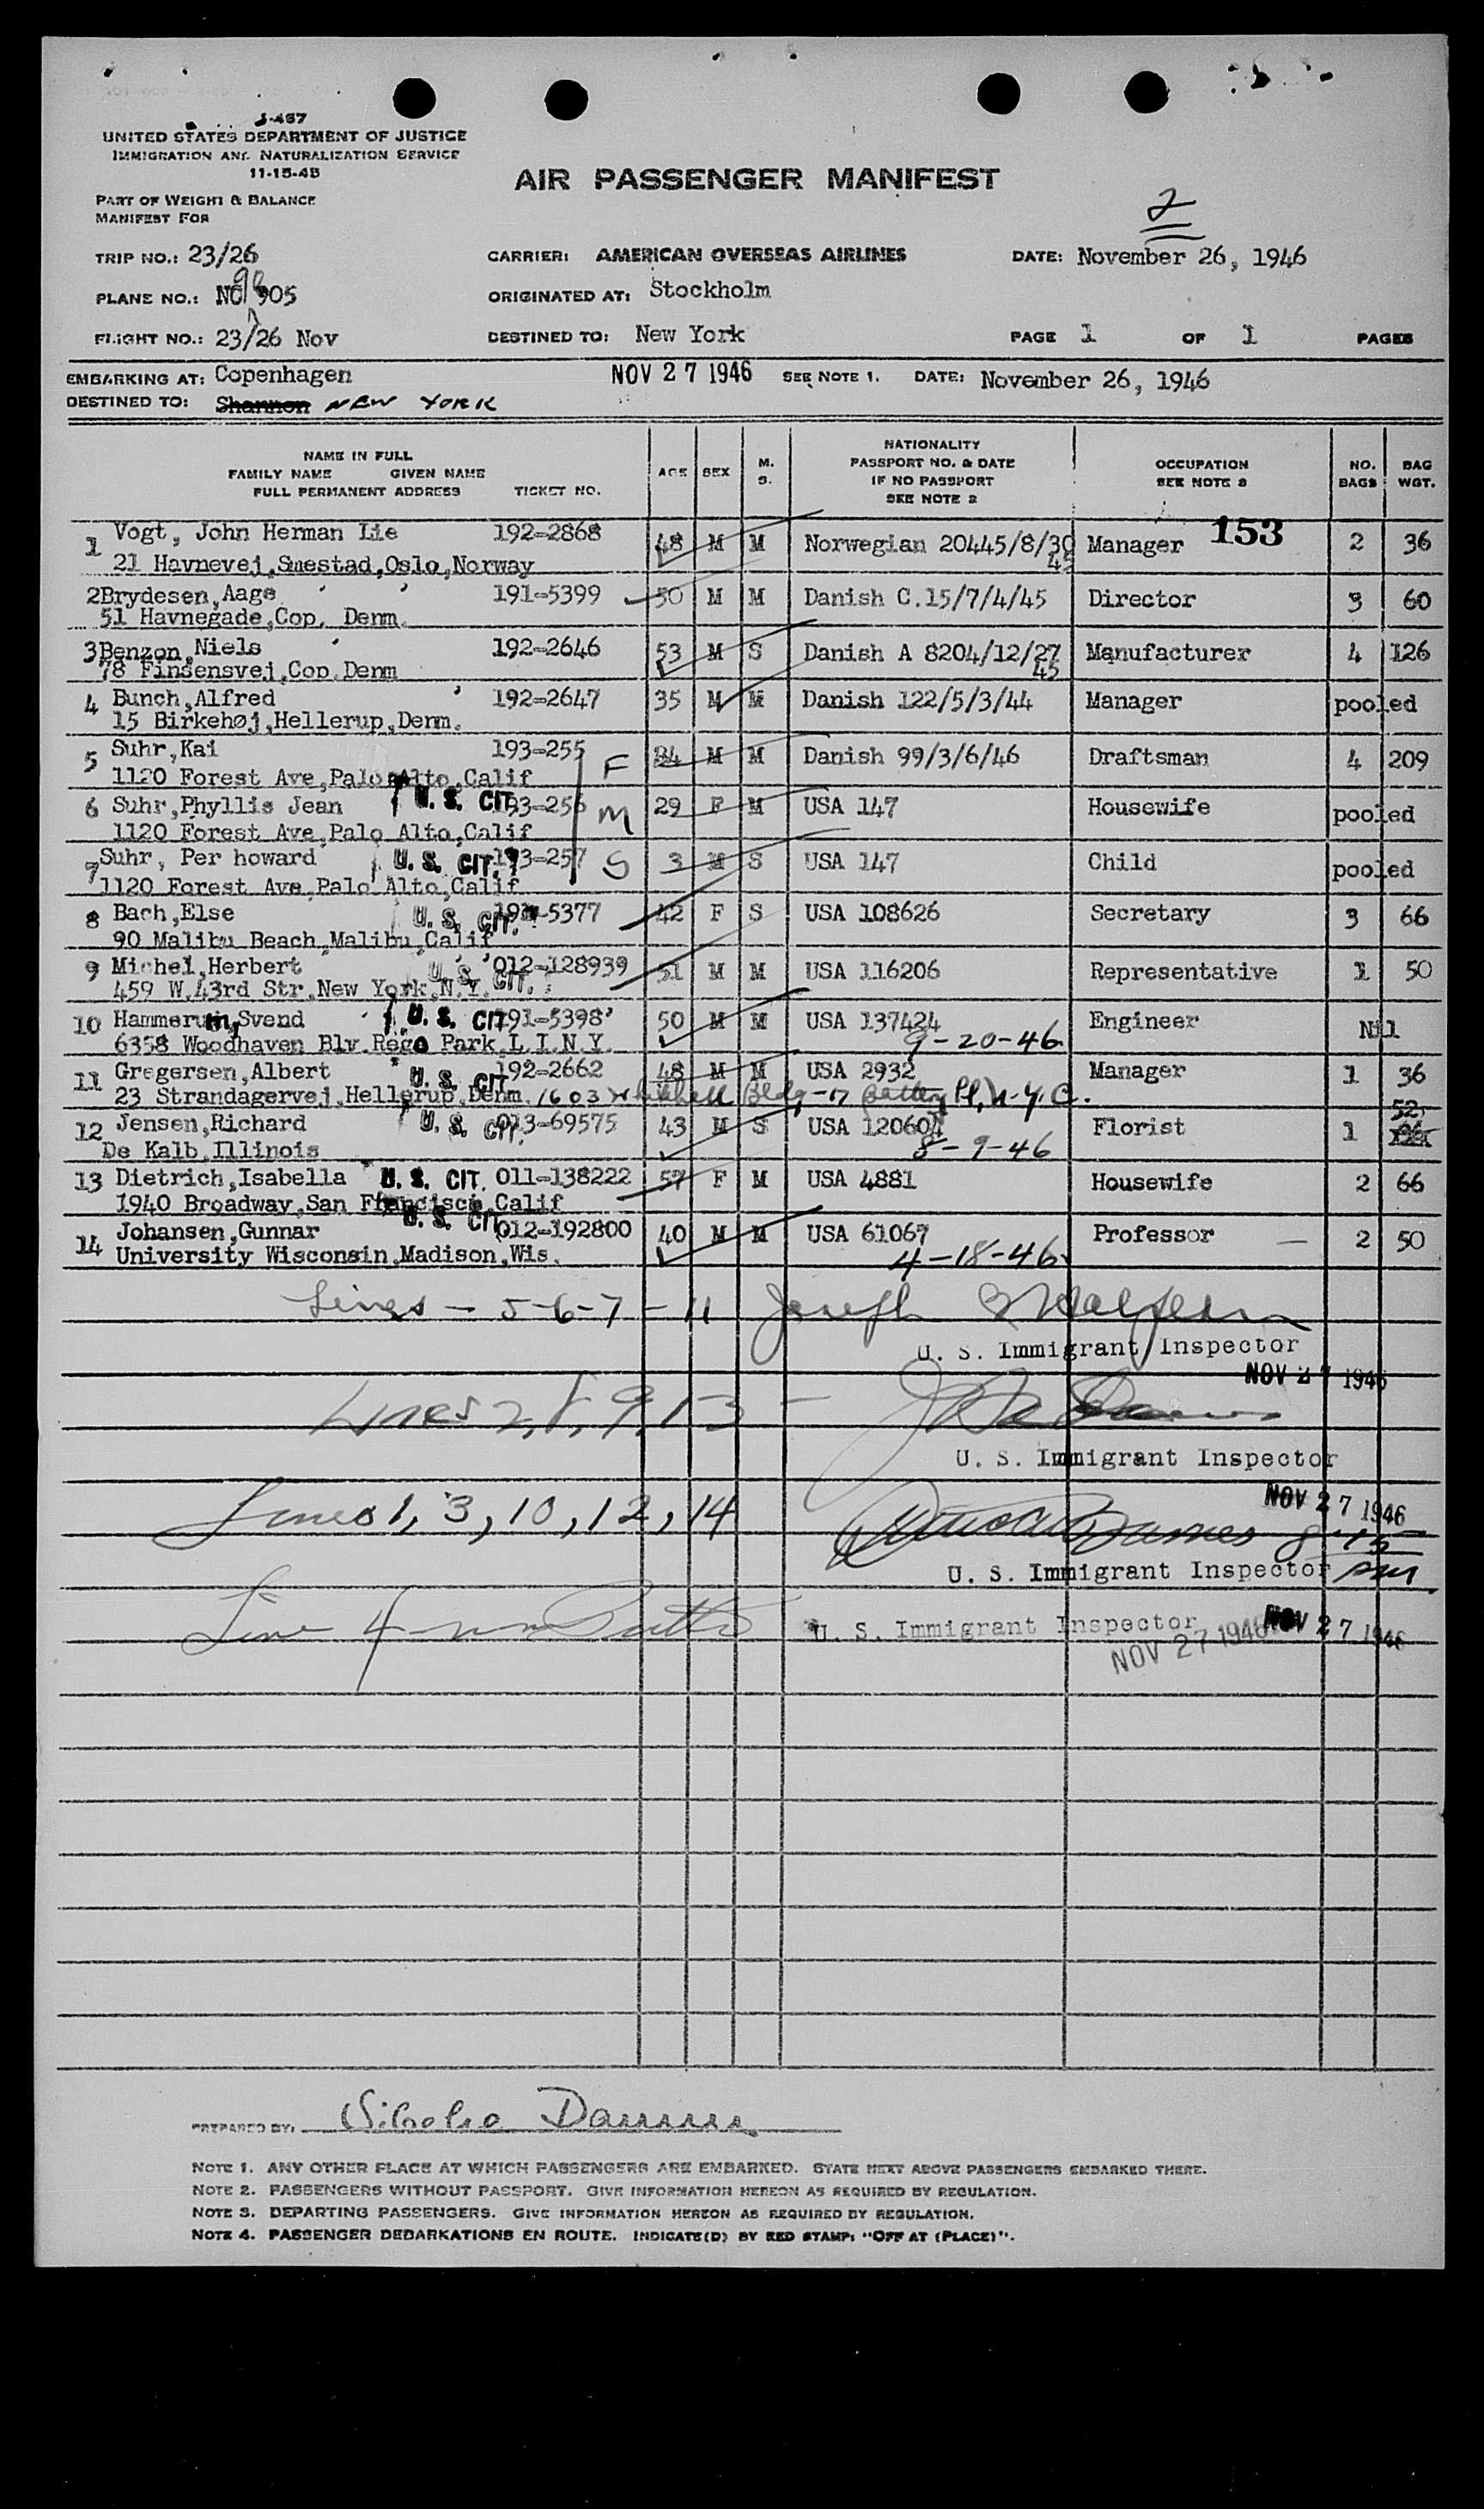 I-467
UNITED STATES DEPARTMENT OF JUSTICE
IMMIGRATION AND NATURALIZATION SERVICE
11-15-45
AIR PASSENGER MANIFEST
PART OF WEIGHT & BALANCE
MANIFEST FOR
2
TRIP NO.: 23/26 CARRIER: AMERICAN OVERSEAS AIRLINES DATE: November 26, 1946
PLANE NO.: NC 90905 ORIGINATED AT: Stockholm
FLIGHT NO.: 23/26 Nov DESTINED TO: New York PAGE 1 OF 1 PAGES
EMBARKING AT: Copenhagen NOV 27 1946 SEE NOTE 1. DATE: November 26, 1946
DESTINED TO: Shannon NEW YORK
NAME IN FULL
FAMILY NAME GIVEN NAME
FULL PERMANENT ADDRESS TICKET NO.
AGE SEX M. S.
NATIONALITY
PASSPORT NO. & DATE
IF NO PASSPORT
SEE NOTE 2
OCCUPATION
SEE NOTE 3
NO. BAGS
BAG WGT.
153
1 Vogt, John Herman Lie 192-2868 48 M M Norwegian 20445/8/30 45 Manager 2 36
21 Havnevej,Smestad,Oslo,Norway
2 Brydesen,Aage 191-5399 50 M M Danish C.15/7/4/45 Director 3 60
51 Havnegade,Cop. Denm.
3 Benzon,Niels 192-2646 53 M S Danish A 8204/12/27 45 Manufacturer 4 126
78 Finsensvej,Cop.Denm
4 Bunch,Alfred 192-2647 35 M M Danish 122/5/3/44 Manager pooled
15 Birkehøj,Hellerup,Denm.
5 Suhr,Kai 193-255 F 34 M M Danish 99/3/6/46 Draftsman 4 209
1120 Forest Ave,Palo Alto,Calif
6 Suhr,Phyllis Jean U. S. CIT. 193-256 M 29 F M USA 147 Housewife pooled
1120 Forest Ave,Palo Alto,Calif
7 Suhr, Per howard U. S. CIT. 193-257 S 3 M S USA 147 Child pooled
1120 Forest Ave,Palo Alto,Calif
8 Bach,Else U. S. CIT. 191-5377 42 F S USA 108626 Secretary 3 66
90 Malibu Beach,Malibu,Calif
9 Michel,Herbert U. S. CIT. 012-128939 51 M M USA 116206 Representative 1 50
459 W.43rd Str.New York,N.Y.
10 Hammerum,Svend U. S. CIT. 191-5398 50 M M USA 137424 Engineer Nil
6358 Woodhaven Blv.Rego Park,L.I.N.Y. 9-20-46
11 Gregersen,Albert U. S. CIT. 192-2662 48 M M USA 2932 Manager 1 36
23 Strandagervej,Hellerup,Denm. 1603 Whitehall Bldg-17 Battery Pl, N.Y.C.
12 Jensen,Richard U. S. CIT. 013-69575 43 M S USA 120604 Florist 1 52
De Kalb,Illinois 8-9-46
13 Dietrich,Isabella U. S. CIT. 011-138222 57 F M USA 4881 Housewife 2 66
1940 Broadway,San Francisco,Calif
14 Johansen,Gunnar U. S. CIT. 012-192800 40 M M USA 61067 Professor 2 50
University Wisconsin,Madison,Wis. 4-18-46
Lines - 5-6-7-11 Joseph
U. S. Immigrant Inspector
NOV 27 1946
Lines 2, 8, 9, 13 -
U. S. Immigrant Inspector
NOV 27 1946
Lines 1, 3, 10, 12, 14
U. S. Immigrant Inspector
Line 4
U. S. Immigrant Inspector NOV 27 1946
NOV 27 1946
PREPARED BY:
NOTE 1. ANY OTHER PLACE AT WHICH PASSENGERS ARE EMBARKED. STATE NEXT ABOVE PASSENGERS EMBARKED THERE.
NOTE 2. PASSENGERS WITHOUT PASSPORT. GIVE INFORMATION HEREON AS REQUIRED BY REGULATION.
NOTE 3. DEPARTING PASSENGERS. GIVE INFORMATION HEREON AS REQUIRED BY REGULATION.
NOTE 4. PASSENGER DEBARKATIONS EN ROUTE. INDICATE(D) BY RED STAMP: "OFF AT (PLACE)".